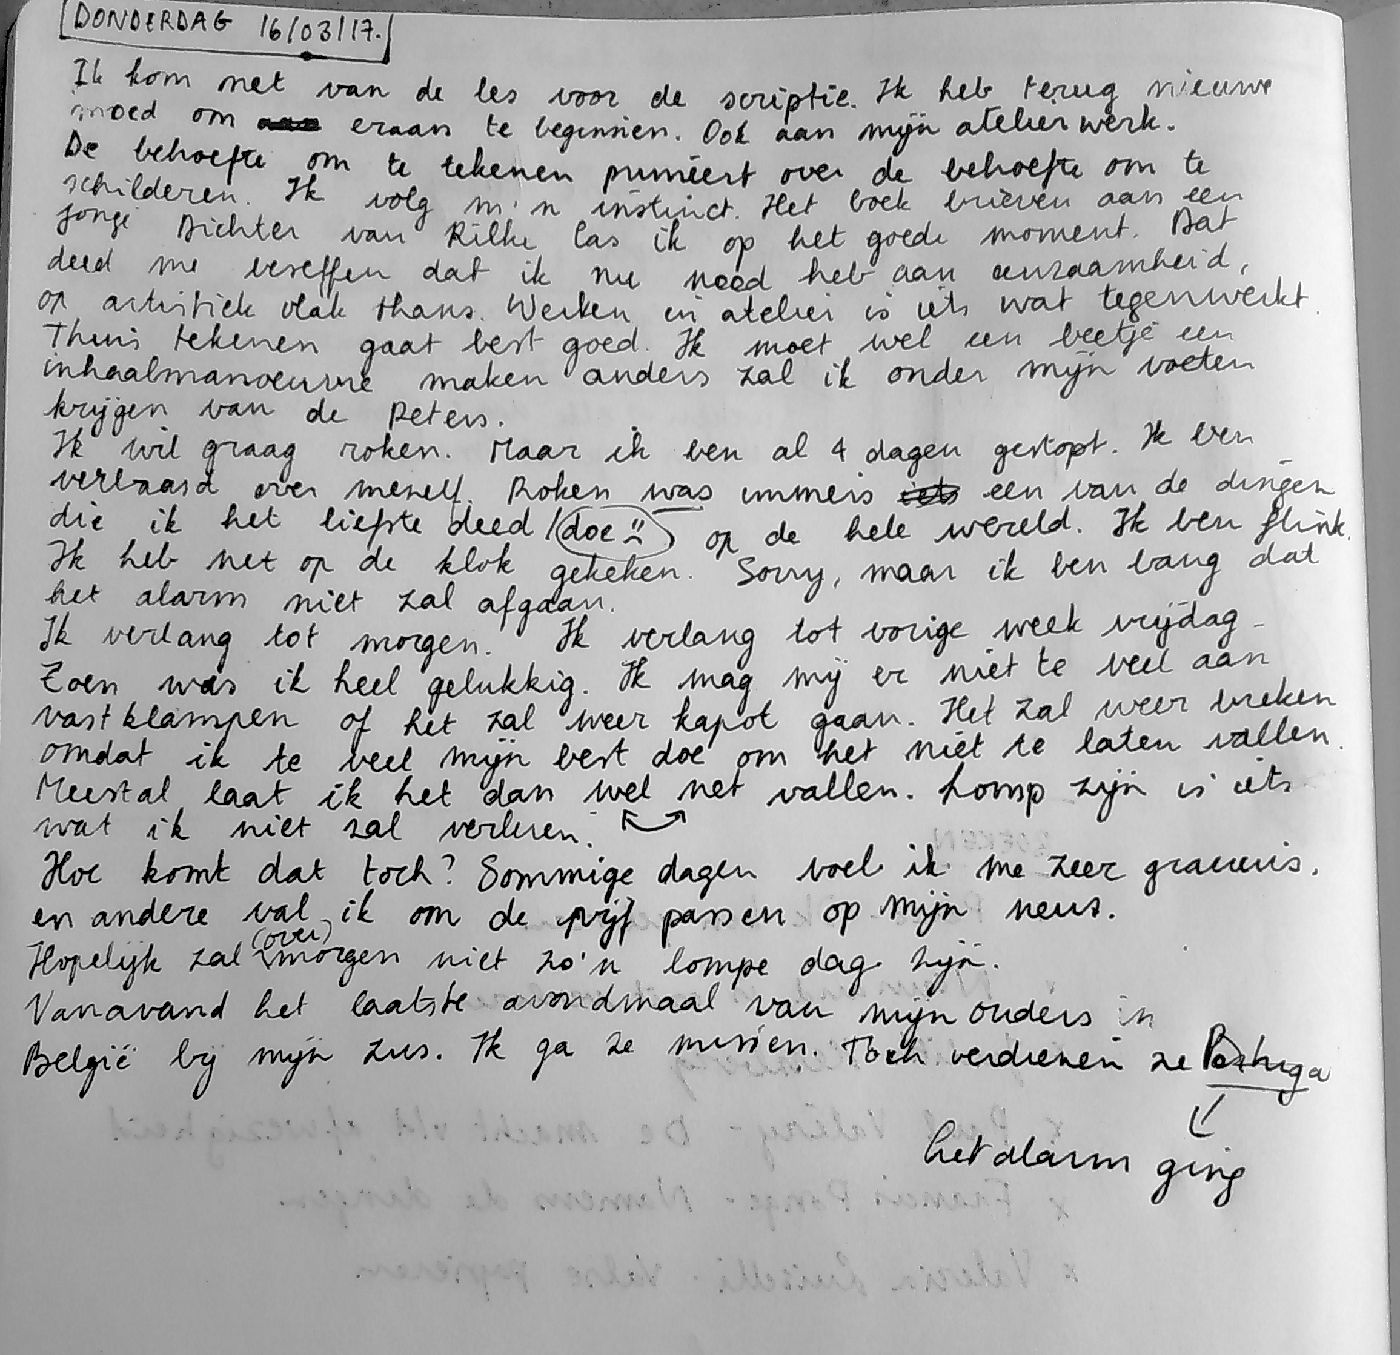 DONDERDAG 16/03/17.
Ik kom net van de les voor de scriptie. Ik heb terug nieuwe
moed om eraan te beginnen. Ook aan mijn atelierwerk.
De behoefte om te tekenen primeert over de behoefte om te
schilderen. Ik volg m'n instinct. Het boek brieven aan een
jonge Dichter van Rilke las ik op het goede moment. Dat
deed me beseffen dat ik nu nood heb aan eenzaamheid,
op artistiek vlak thans. Werken in atelier is iets wat tegenwerkt.
Thuis tekenen gaat best goed. Ik moet wel een beetje een
inhaalmanoeuvre maken anders zal ik onder mijn voeten
krijgen van de Peters.
Ik wil graag roken. Maar ik ben al 4 dagen gestopt. Ik ben
verbaasd over mezelf. Roken was immers iets een van de dingen
die ik het liefste deed / doe op de hele wereld. Ik ben flink.
Ik heb net op de klok gekeken. Sorry, maar ik ben bang dat
het alarm niet zal afgaan.
Ik verlang tot morgen. Ik verlang tot vorige week vrijdag -
Toen was ik heel gelukkig. Ik mag mij er niet te veel aan
vastklampen of het zal weer kapot gaan. Het zal weer breken
omdat ik te veel mijn best doe om het niet te laten vallen.
Meestal laat ik het dan wel net vallen. Lomp zijn is iets
wat ik niet zal verleren.
Hoe komt dat toch? Sommige dagen voel ik me zeer gracieus.
en andere val ik om de vijf passen op mijn neus.
Hopelijk zal (over)morgen niet zo'n lompe dag zijn.
Vanavand het laatste avondmaal van mijn ouders in
België bij mijn zus. Ik ga ze missen. Toch verdienen ze Portuga
het alarm ging